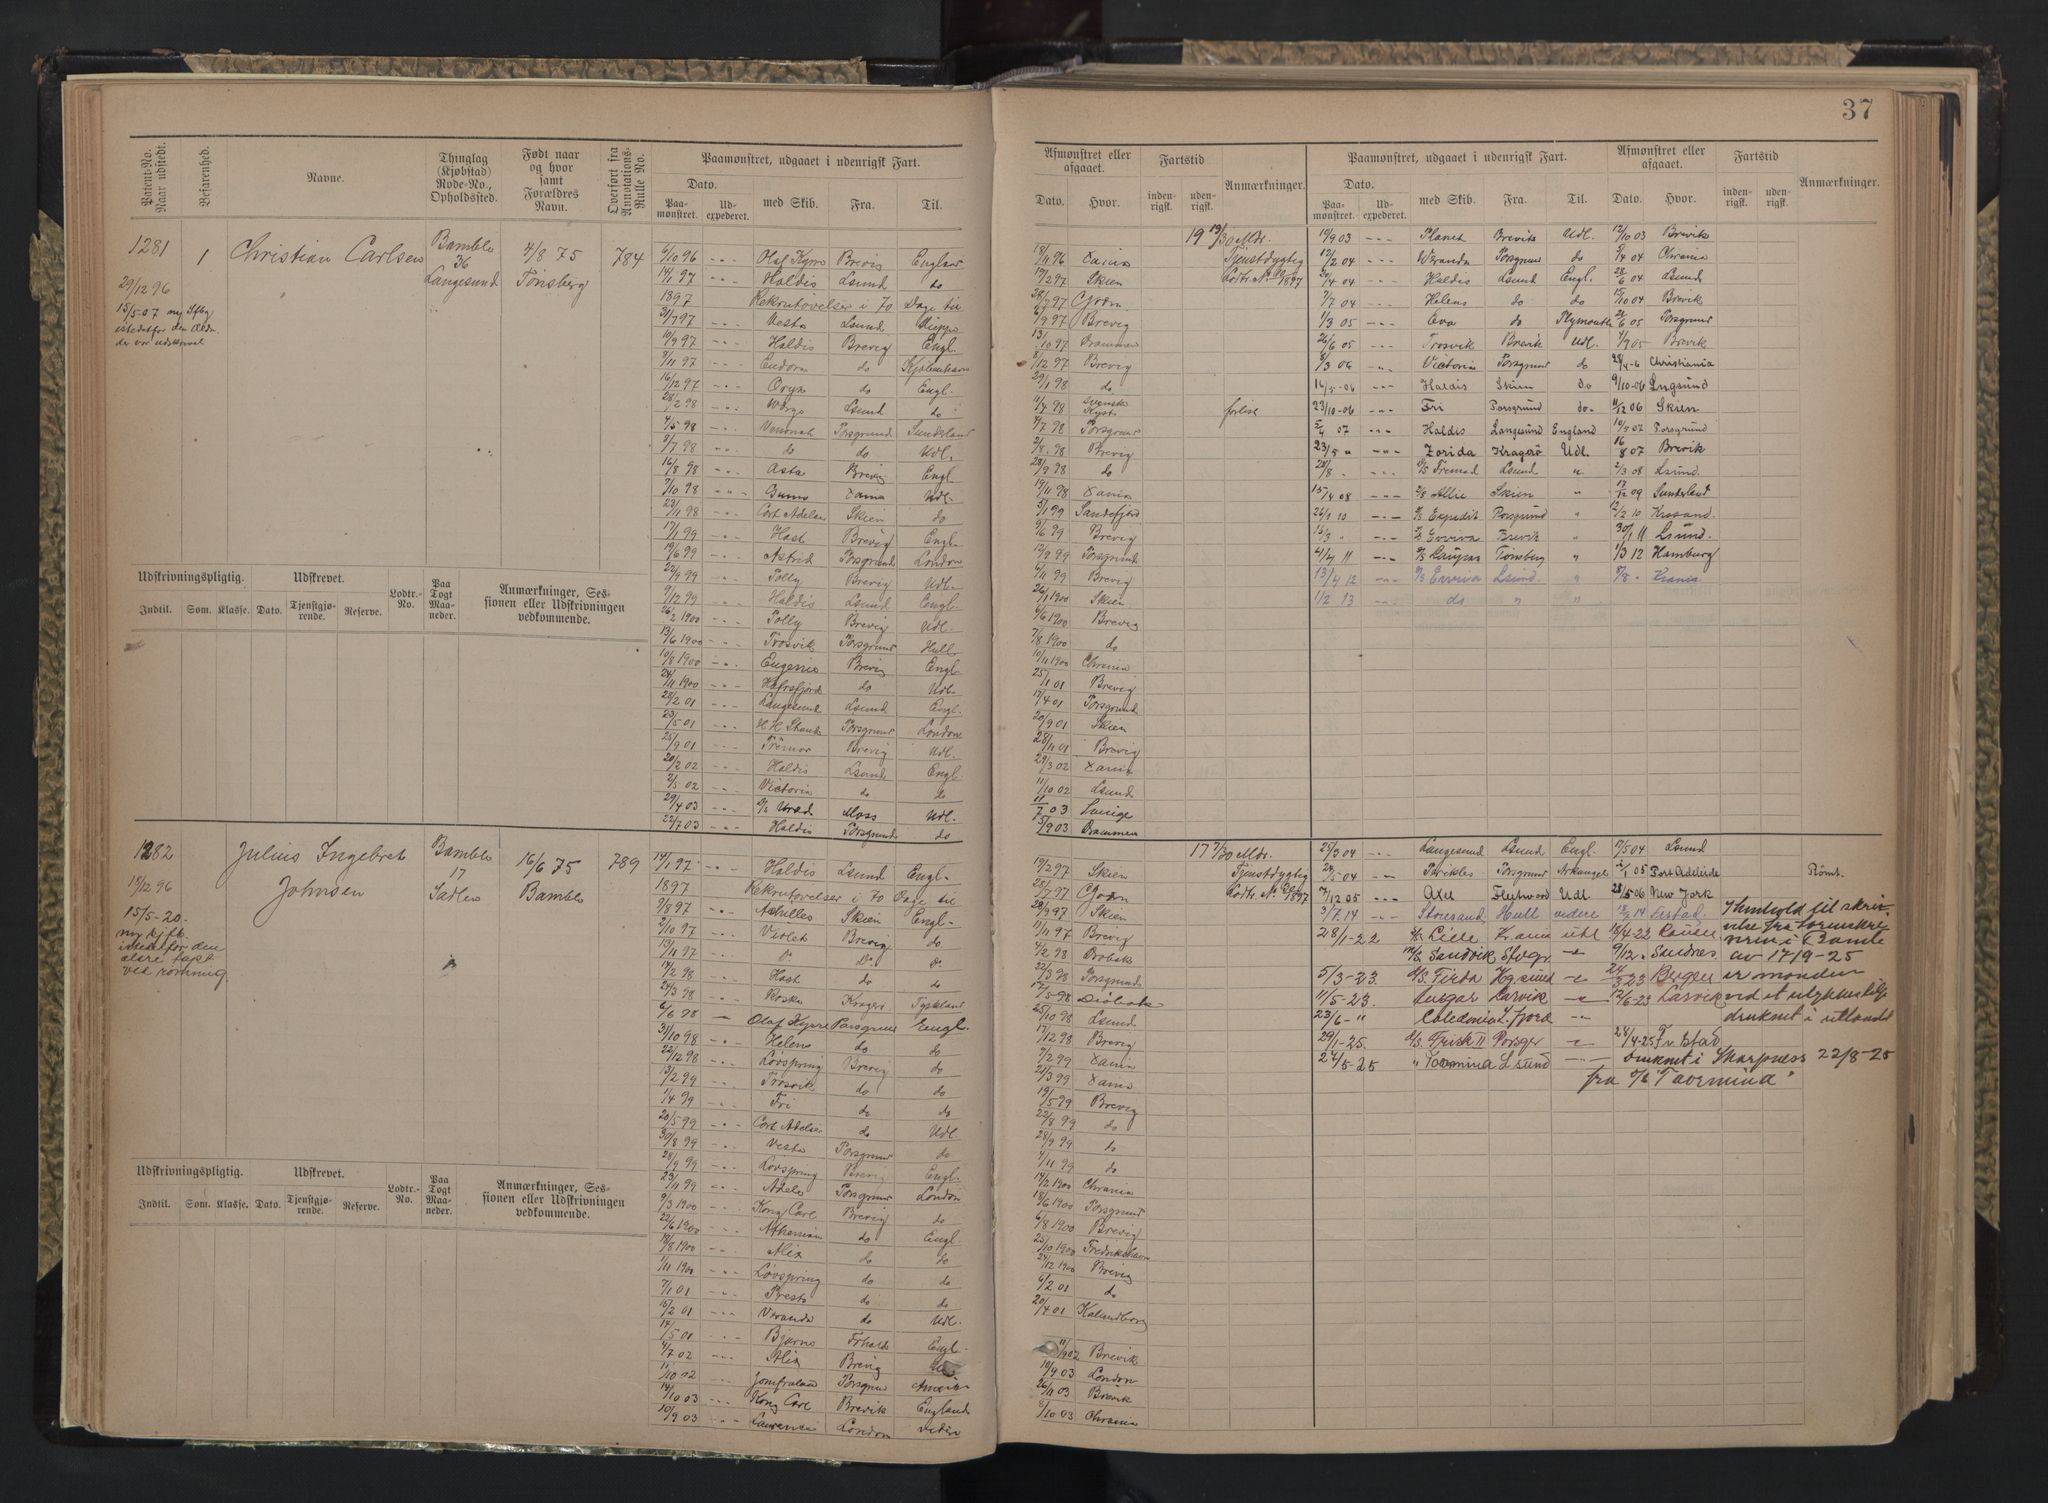 37
Patent-No. Naar udstedt.
Befarenhed.
Navne.
Thinglag (Kjøbstad) Rode-No., Opholdssted.
Født naar og hvor samt Forældres Navn.
Overført fra Annotations-Rulle No.
Paamønstret, udgaaet i udenrigsk Fart.
Dato.
Paa-mønstret.
Ud-expederet.
med Skib.
Fra.
Til.
Afmønstret eller afgaaet.
Dato.
Hvor.
Fartstid
inden-rigsk.
uden-rigsk.
Anmærkninger.
Paamønstret, udgaaet i udenrigsk Fart.
Dato.
Paa-mønstret.
Ud-expederet.
med Skib.
Fra.
Til.
Afmønstret eller afgaaet.
Dato.
Hvor.
Fartstid
inden-rigsk.
uden-rigsk.
Anmærkninger.
1281
29/12 96
15/5-07 ny Sfbg
istedetfor den Ældr.
1
Christian Carlsen
Bamble
36
Langesund
4/8 75
Tönsberg
784
6/10 96 Olaf Kyrre Brevig England
14/1 97 Haldis Lsund do
1897 Rekrutøvelser i 70 Dage til
31/7 97 Vesta Lsund Dieppe
10/9 97 Haldis Brevig Engl.
8/11 97 do Kjöbenhavn
16/12 97 Oryx do Engl.
28/2 98 Lsund do
7/5 98 Porsgrund Sunderland
8/7 98 do do Udl.
16/8 98 Asta Brevig Engl
7/10 98 Xania Udl.
23/11 98 Cort Adelaer Skien do
17/1 99 Hast Brevig Engl.
19/6 99 Astrid Porsgrund London
22/9 99 Polly Brevig Udl.
7/12 99 Haldis Lsund Engl.
26/2 1900 Polly Brevig Udl.
13/6 1900 Trosvik Porsgrund Hull
10/8 1900 Eugenie Brevig Engl.
24/11 1900 Hafrsfjord do Udl.
28/2 01 Langesund Lsund Engl.
23/5 01 Porsgrund London
25/9 01 Brevig Udl.
20/2 02 Haldis Lsund Engl.
2/5 02 Victoria do do
29/4 03 Moss Udl.
22/7 03 Haldis Porsgrund do
19 19/30 Mdr.
Tjenstdygtig
18/11 96 Xania
19/2 97 Skien
28/7 97 Gjøðn
6/9 97 Brevig
13/10 97 Drammen
8/12 97 Brevig
29/1 98 do
11/4 98 Svenske Kyst forlist
4/7 98 Porsgrund
2/8 98 Brevig
28/9 98 do
19/11 98 Xania
5/1 99 Sandefjord
9/6 99 Brevig
12/9 99 Porsgrund
6/11 99 Brevig
26/1 1900 Skien
6/6 1900 Brevig
7/8 1900 do
10/11 1900 Chrania
25/1 01 Brevig
17/4 01 Porsgrund
20/9 01 Skien
28/11 01 Brevig
29/3 02 Xania
11/10 02 Lsund
11/7 03 Sverige
5/9 03 Drammen
19/9 03 Planet Brevik Udl. 12/10 03 Brevik
12/2 04 Veranda Porsgrund do 8/4 04 Chrania
20/4 04 Haldis Lsund Engl. 28/6 04 Lsund
7/7 04 Helene do do 15/10 04 Brevik
1/3 05 Eva do Plymouth 21/6 05 Porsgrund
26/6 05 Trosvik Brevik Udl. 4/9 05 Brevik
8/3 06 Victoria Porsgrund do 28/4-6 Christiania
16/5-06 Haldis Skien do 9/10-06 Lngsund
23/10-06 Fri Porsgrund do 11/12 06 Skien
5/4 07 Haldis Langesund England 10/5 07 Porsgrund
23/5 " Zorida Kragerø Udl. 16/8 07 Brevik
28/8 D/S Fremad Lsund " 2/3 08 Lsund.
15/4 08 D/S Allie Skien " 17/12 09 Sunderland
26/1 10 D/S Expedit Porsgrund " 12/2 10 Krsand.
16/3 " Brevik " 30/1 11 Lsund.
4/4 11 Tönsberg " 1/3 12 Hamburg
13/4 12 Lsund " 8/8 - Krania
1/2 13 do " "
Udskrivningspligtig.
Udskrevet.
Indtil.
Som.
Klasse.
Dato.
Tjenstgjø-rende.
Reserve.
Lodtr.-No.
Paa Togt Maa-neder.
Anmærkninger, Ses-sionen eller Udskrivningen vedkommende.
1282
19/12 96
15/5-20.
ny sjfb.
istedetfor den
ældre tapt
ved rømning.
Julius Ingebret
Johnsen
Bamble
17
16/6 75
Bamble
789
14/1 97 Haldis Lsund Engl.
1897 Rekrutøvelser i 70 Dage til
2/8 97 Achilles Skien Engl.
2/10 97 Violet Brevig do
13/11 97 Do Do Do
14/2 98 Hast do do
24/3 98 Kragerø Tyskland
6/6 98 Olaf Kyrre Porsgrund Engl.
31/10 98 Helene do do
22/12 98 Løvspring Brevig do
13/2 99 Trosvik do do
1/4 99 Fri do do
20/5 99 Cort Adelaer do Udl.
30/8 99 Vesta Porsgrund do
28/9 99 Løvspring Brevig Engl.
23/11 99 Adele Porsgrund London
9/3 1900 Kong Carl Brevig do
22/6 1900 Athenian do Engl.
18/8 1900 Alix do do
1/11 1900 Løvspring do do
7/1 01 Presto do do
15/2 01 Veranda do Udl.
14/5 01 Bjarne Frhald Engl.
4/7 02 Alix Brevig
11/10 02 Jomfruland Porsgrund
14/10 03 Kong Carl Brevik England
10/9 03 London videre
17 7/30 Mdr.
Tjenstdygtig
19/2 97 Skien
28/7 97
28/9 97 Skien
11/11 97 Brevig
4/2 98 Drøbak
22/3 98 Porsgrund
17/5 98
25/10 98 Lsund
17/12 98 Brevig
7/2 99 Xania
21/3 99 Xania
19/5 99 Brevig
22/8 99 do
28/9 99 do
4/11 99 do
14/2 1900 Chrania
18/6 1900 Porsgrund
6/8 1900 Brevig
25/10 1900 Fredrikshavn
24/12 1900 Brevig
6/2 01 do
20/4 01 Kalundborg
11/9 02 Brevik
10/9 03 London
26/11 03 Brevik
8/10 03 Chrania
25/3 04 Langesund Lsund Engl. 7/5 04 Lsund
24/5 04 Perikles Porsgrund Arkangel 2/1 05 Port Adelaide Römt.
7/12 05 Axel Fleetwood Udl 28/5-06 New York
3/7.14 Storesand Hull videre 18/8 14
28/1-22 Krania utl 18/4-22
M/S Sandvik Stvgr. 9/12 Sandnes
5/3-23. D/S Firda Hg.sund 24/3 23 Bergen
11/5-23. Ansgar Larvik 12/6-23 Larvik
23/6-" Caledonia
29/1-25. D/S Frisk II Porsgr 28/4-25 Fr.stad
24/5-25 " Taormina Lsund druknet i Sharpness 22/8-25
fra D/S "Taormina"
I henhold til skriv-
else fra
i Bamle
av 17/9-25
er manden
ved et ulykkestilfe
druknet i utlandet
Udskrivningspligtig.
Udskrevet.
Indtil.
Som.
Klasse.
Dato.
Tjenstgjø-rende.
Reserve.
Lodtr.-No.
Paa Togt Maa-neder.
Anmærkninger, Ses-sionen eller Udskrivningen vedkommende.